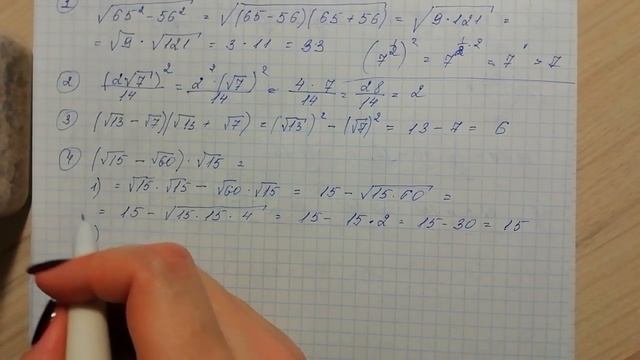 ① √(65² − 56²) = √((65 − 56)(65 + 56)) = √(9 · 121) =
= √9 · √121 = 3 · 11 = 33 (7^(1/2))² = 7^(1/2 · 2) = 7¹ = 7
② (2√7)²/14 = 2² · (√7)²/14 = 4 · 7/14 = 28/14 = 2
③ (√13 − √7)(√13 + √7) = (√13)² − (√7)² = 13 − 7 = 6
④ (√15 − √60) · √15 =
1) = √15 · √15 − √60 · √15 = 15 − √(15 · 60) =
= 15 − √(15 · 15 · 4) = 15 − 15 · 2 = 15 − 30 = 15
)